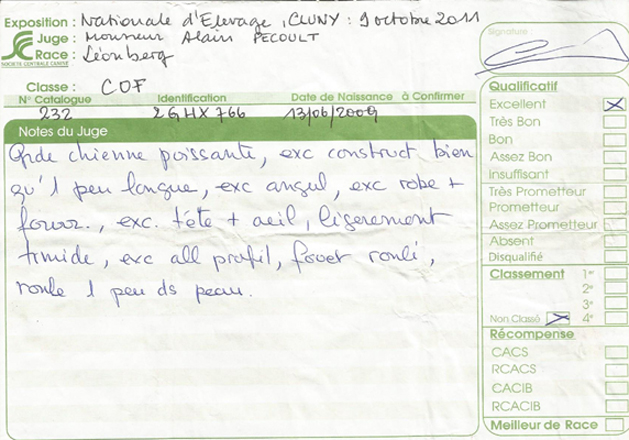 Exposition : Nationale d'Elevage, CLUNY : 9 octobre 2011
Juge : Monsieur Alain PECOULT
Race : Léonberg
SOCIÉTÉ CENTRALE CANINE
Signature
Classe : COF
N° Catalogue Identification Date de Naissance À Confirmer
232 2GHX766 13/06/2009
Notes du Juge
Gde chienne puissante, exc construct bien
qu'1 peu longue, exc angul, exc robe +
fourr., exc. tête + oeil, légerement
timide, exc all profil, fouet roulé,
roule 1 peu ds peau.
Qualificatif
Excellent
Très Bon
Bon
Assez Bon
Insuffisant
Très Prometteur
Prometteur
Assez Prometteur
Absent
Disqualifié
Classement 1er
2e
3e
Non Classé 4e
Récompense
CACS
RCACS
CACIB
RCACIB
Meilleur de Race